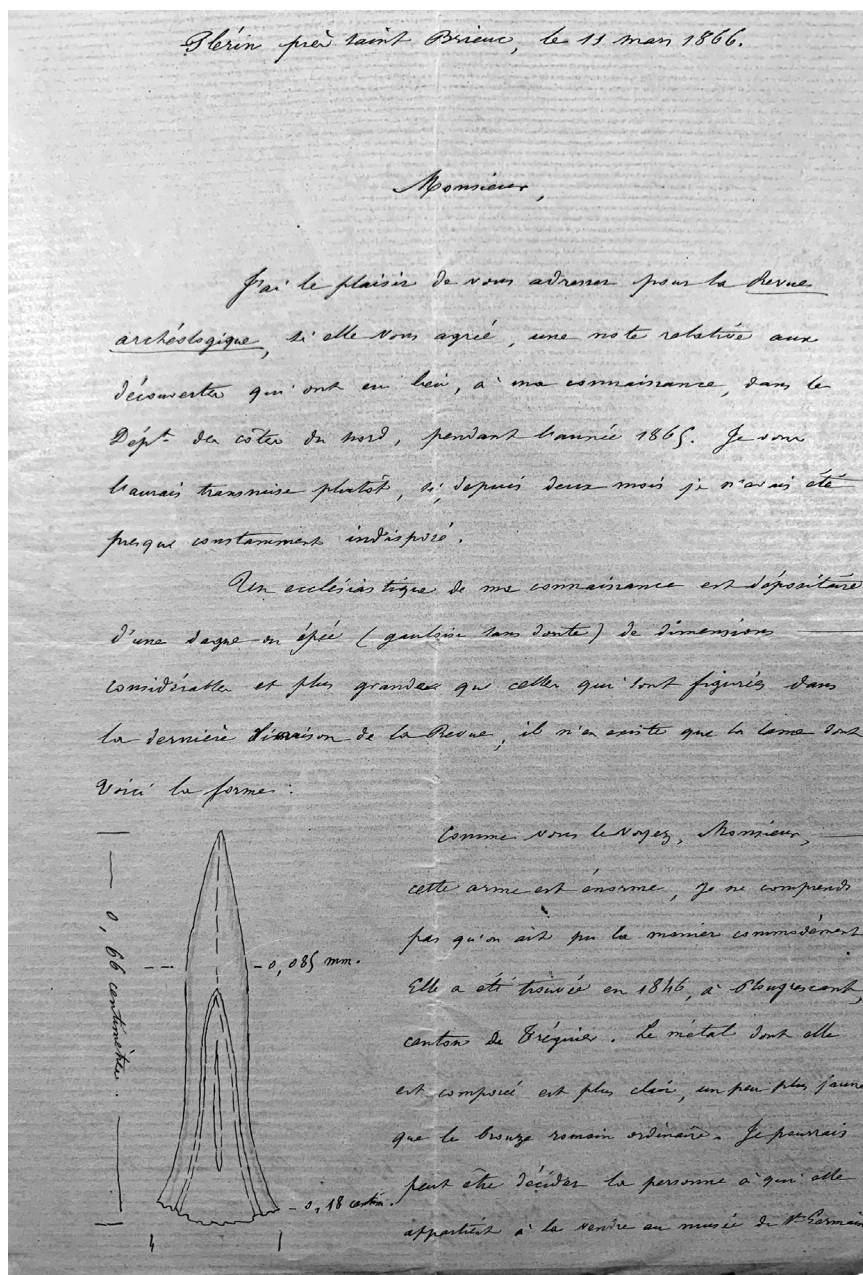 Plérin près saint Brieuc, le 11 mars 1866.
Monsieur,
J'ai le plaisir de vous adresser pour la Revue
archéologique, si elle vous agrée, une note relative aux
découvertes qui ont eu lieu, à ma connaissance, dans le
Dépt des côtes du nord, pendant l'année 1865. Je vous
l'aurais transmise plutôt, si, depuis deux mois je n'avais été
presque constamment indisposé.
Un ecclésiastique de ma connaissance est dépositaire
d'une dague ou épée (gauloise sans doute) de dimensions
considérables et plus grandes que celles qui sont figurées dans
la dernière livraison de la Revue, il n'en existe que la lame dont
voici la forme :
Comme vous le voyez, Monsieur,
cette arme est énorme, je ne comprends
pas qu'on ait pu la manier commodément
Elle a été trouvée en 1846, à Plougrescant,
canton de Tréguier. Le métal dont elle
est composée est plus clair, un peu plus jaune
que le bronze romain ordinaire. Je pourrais
peut être décider la personne à qui elle
appartient à la vendre au musée de St Germain
0,66 centimètres.
0,085 mm.
0,18 centim.